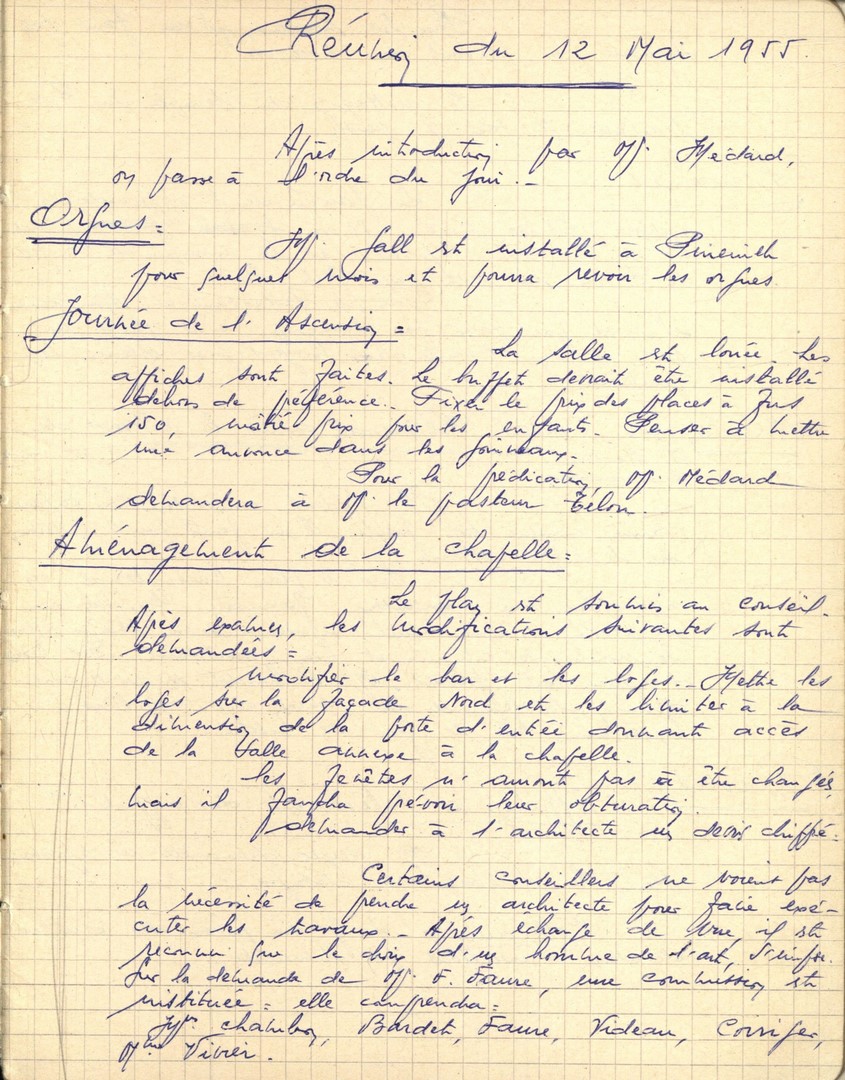 Réunion du 12 Mai 1955.
Après introduction par M. Médard,
on passe à l'ordre du jour. -
Orgues =
M. Gall est installé à
pour quelques mois et pourra revoir les orgues.
Journée de l'Ascension =
La salle est louée. Les
affiches sont faites. Le buffet devrait être installé
dehors de préférence. - Fixer le prix des places à frs
150, moitié prix pour les enfants. Penser à mettre
une annonce dans les journaux.
Pour la prédication, M. Médard
demandera à M. le pasteur Télon.
Aménagement de la chapelle =
Le plan est soumis au conseil.
Après examen, les modifications suivantes sont
demandées =
modifier le bar et les loges. - Mettre les
loges sur la façade Nord et les limiter à la
dimension de la porte d'entrée donnant accès
de la salle annexe à la chapelle.
les fenêtres n'auront pas à être changées
mais il faudra prévoir leur obturation.
demander à l'architecte un devis chiffré.
Certains conseillers ne voient pas
la nécessité de prendre un architecte pour faire exé-
cuter les travaux. - Après échange de vue, il est
reconnu que le choix d'un homme de l'art, s'impose.
Sur la demande de M. F. Faure, une commission est
instituée = elle comprendra =
MM. Chambon, Bardet, Faure, Videau, Corriger,
Mme Vivier.